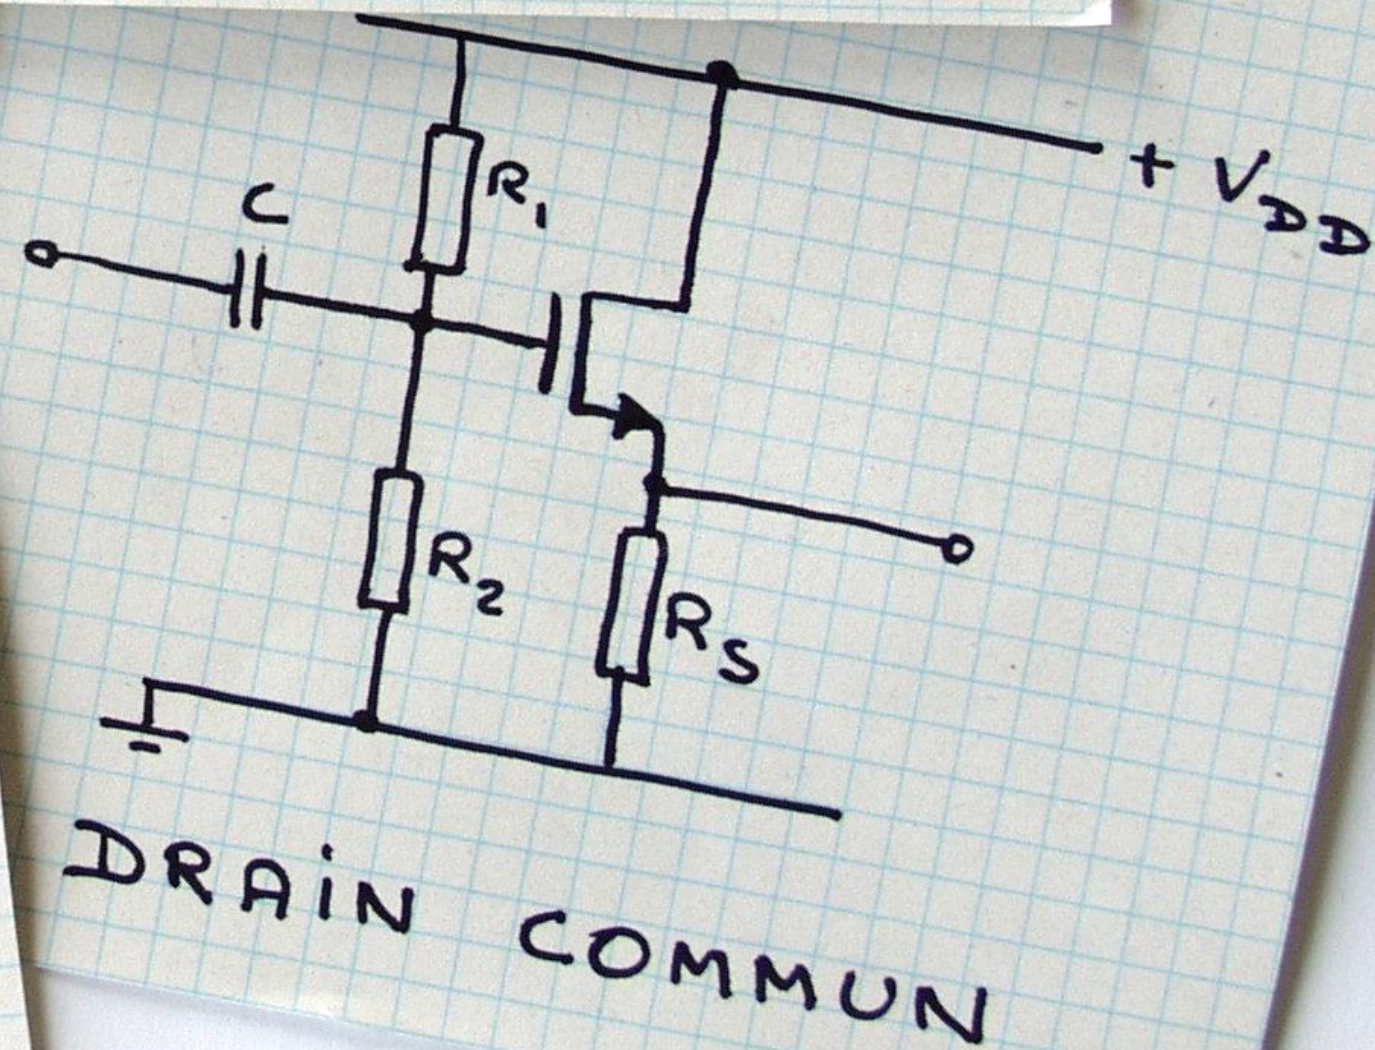 + VDD
R1
C
R2
RS
DRAIN COMMUN